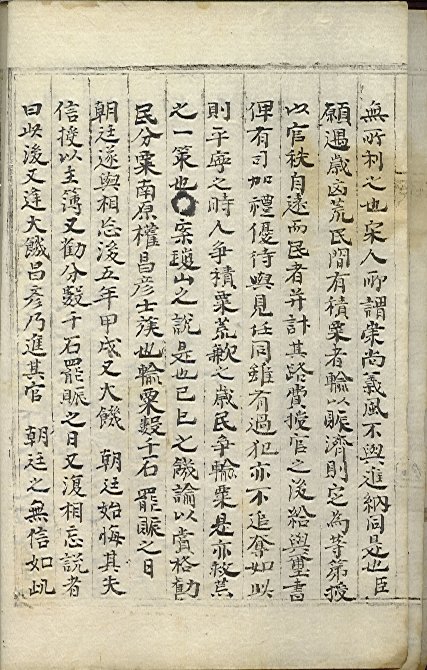 無所利之也宋人所謂崇尚義風不與進納同是也臣
願遇歲凶荒民間有積粟者輸以賑濟則定為等第授
以官秩自遠而民者并計其路費授官之後給與璽書
俾有司加禮優待與見任同雖有過犯亦不追奪如此
則平寧之時人爭積粟荒歉之歲民爭輸粟是亦救荒
之一策也○案瓊山之說是也己巳之饑論以賞格勸
民分粟南原權昌彦士族也輸粟數千石罷賑之日
朝廷遂與相忘後五年甲戌又大饑 朝廷始悔其失
信授以主簿又勸分數千石罷賑之日又復相忘説者
曰此後又逢大饑昌彦乃進其官 朝廷之無信如此